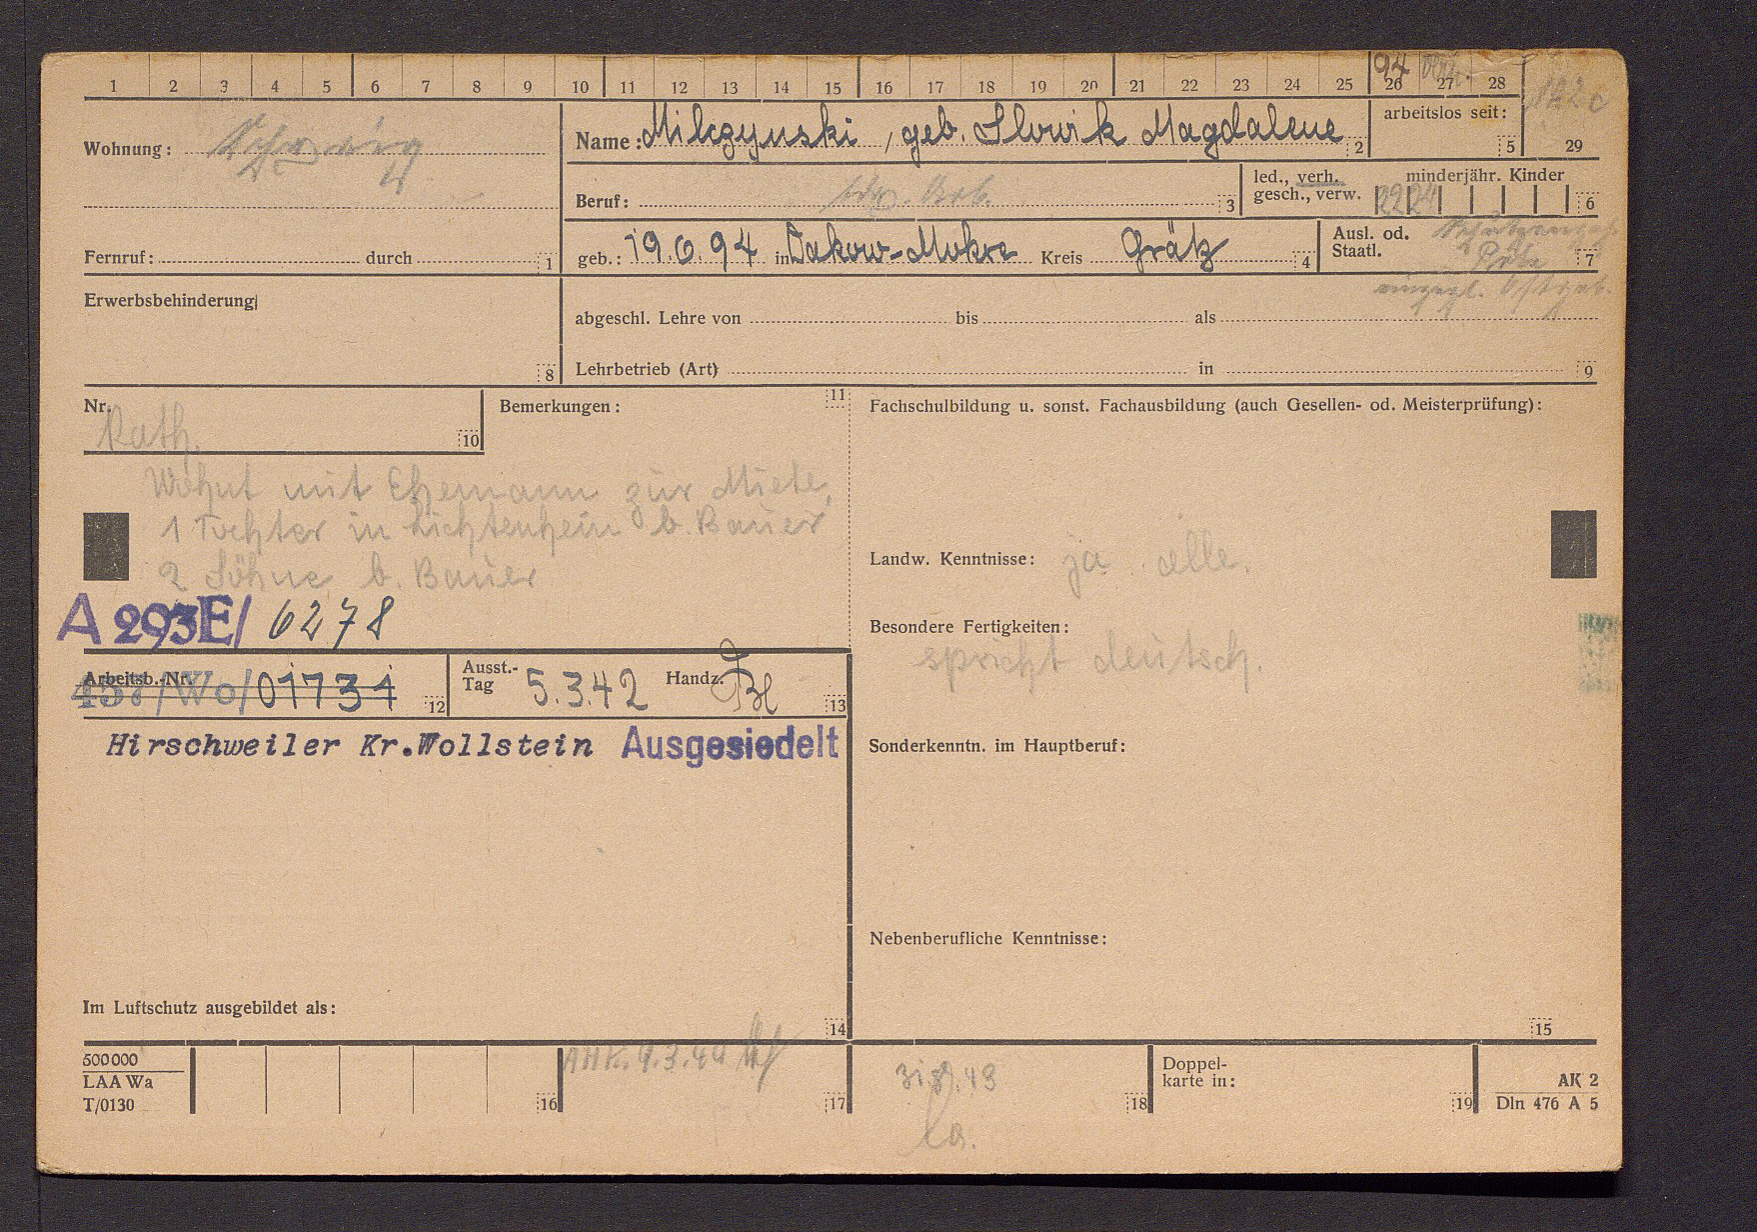 1 2 3 4 5 6 7 8 9 10 11 12 13 14 15 16 17 18 19 20 21 22 23 24 25 26 27 28
94 verh.
122c
29
Wohnung:
Name: Milczynski, geb. Slowik Magdalene 2
arbeitslos seit: 5
Beruf: 3
led., verh. gesch., verw.
minderjähr. Kinder 22 24 6
Fernruf: durch 1
geb.: 19.6.94 in Dakow-Mokre Kreis Grätz 4
Ausl. od. Staatl. 7
eingegl. Ostgeb.
Erwerbsbehinderung 8
abgeschl. Lehre von bis als
Lehrbetrieb (Art) in 9
Nr. 10
Kath.
Bemerkungen: 11
Wohnt mit Ehemann zur Miete,
1 Tochter in Lichtenhein b. Bauer
2 Söhne b. Bauer
A 293E/ 6278
Fachschulbildung u. sonst. Fachausbildung (auch Gesellen- od. Meisterprüfung):
Landw. Kenntnisse: ja alle.
Besondere Fertigkeiten:
spricht deutsch.
Arbeitsb.-Nr. 457/Wo/01731 12
Ausst.-Tag 5.3.42 Handz. 13
Hirschweiler Kr.Wollstein Ausgesiedelt
Sonderkenntn. im Hauptberuf:
Nebenberufliche Kenntnisse:
Im Luftschutz ausgebildet als: 14
15
500000
LAA Wa
T/0130
16
AHK. 9.3.44
17
18
Doppel-
karte in: 19
AK 2
Dln 476 A 5